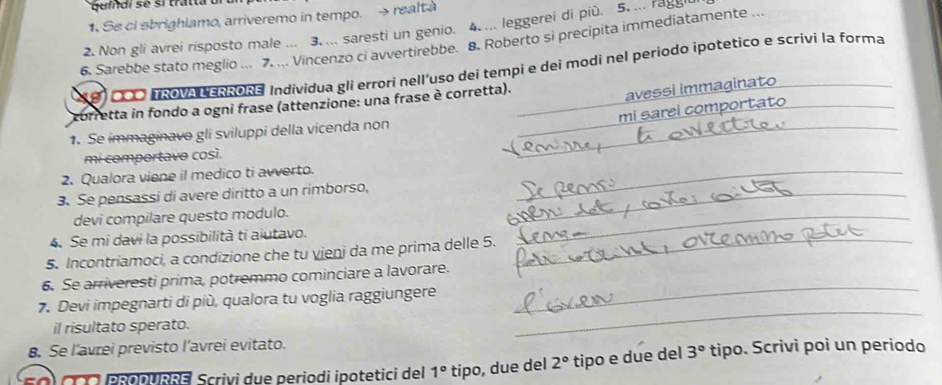 quindi se si tratta
1. Se ci sbrighiamo, arriveremo in tempo. → realtà
2. Non gli avrei risposto male ... 3. ... saresti un genio. 4. ... leggerei di più. 5. ...
6. Sarebbe stato meglio ... 7. ... Vincenzo ci avvertirebbe. 8. Roberto si precipita immediatamente ...
49 TROVA L'ERRORE Individua gli errori nell'uso dei tempi e dei modi nel periodo ipotetico e scrivi la forma
corretta in fondo a ogni frase (attenzione: una frase è corretta).
1. Se immaginavo gli sviluppi della vicenda non avessi immaginato
mi comportavo così. mi sarei comportato
2. Qualora viene il medico ti avverto. venisse, ti
3. Se pensassi di avere diritto a un rimborso, Se pensi
devi compilare questo modulo.
4. Se mi davi la possibilità ti aiutavo.
5. Incontriamoci, a condizione che tu vieni da me prima delle 5.
6. Se arriveresti prima, potremmo cominciare a lavorare.
7. Devi impegnarti di più, qualora tu voglia raggiungere
il risultato sperato.
8. Se l'avrei previsto l'avrei evitato. l'avessi
50 PRODURRE Scrivi due periodi ipotetici del 1° tipo, due del 2° tipo e due del 3° tipo. Scrivi poi un periodo